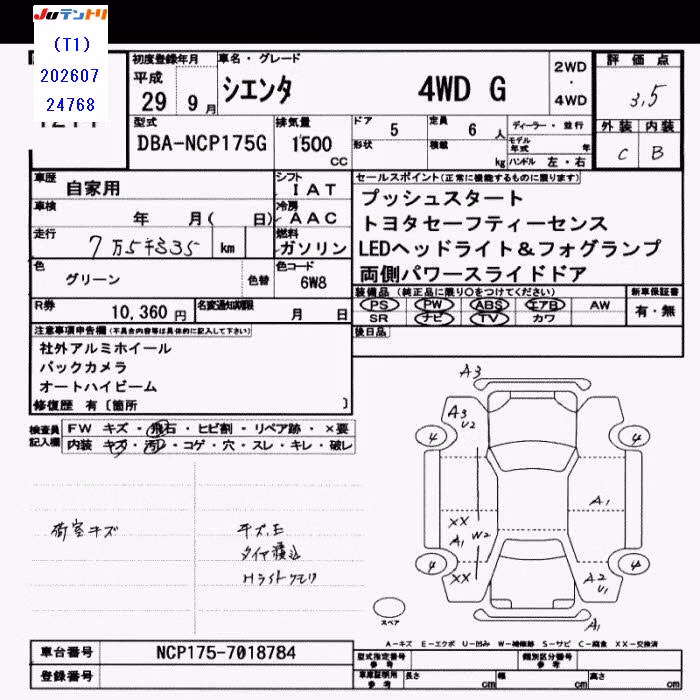 JUテントリ
(T1)
202607
24768
初度登録年月
平成
29 9月
車名・グレード
シエンタ 4WD G
2WD
・
4WD
評価点
3,5
外装 内装
C B
型式
DBA-NCP175G
排気量
1500
CC
ドア
5
形状
定員
6 人
積載
kg
ディーラー・並行
モデル年式 年
ハンドル 左・右
車歴
自家用
シフト
I A T
車検
年 月( 日)
冷房
A A C
走行
7万5千335 km
燃料
ガソリン
色
グリーン
色替
色コード
6W8
R券
10,360 円
名変通知期限
月 日
セールスポイント(正常に機能するものに限ります)
プッシュスタート
トヨタセーフティーセンス
LEDヘッドライト&フォグランプ
両側パワースライドドア
装備品(純正品に限り○をつけてください)
PS PW ABS エアB AW
SR ナビ TV カワ
新車保証書
有・無
後日品
注意事項申告欄(不具合内容等は具体的に記入して下さい)
社外アルミホイール
バックカメラ
オートハイビーム
修復歴 有〔箇所 〕
検査員記入欄
FW キズ・飛石・ヒビ割・リペア跡・×要
内装 キズ・汚レ・コゲ・穴・スレ・キレ・破レ
荷室キズ
キズ.E
タイヤ積込
Hライトクモリ
A3
A3
U2
4
4
XX
A1 W2
XX
A1
4
4
A2
U1
A1
スペア
A-キズ E-エクボ U-凹み W-補修跡 S-サビ C-腐食 XX-交換済
車台番号 NCP175-7018784
登録番号
型式指定番号
参考
類別区分番号
参考
車庫証明用
参考
長さ cm 幅 cm 高さ cm